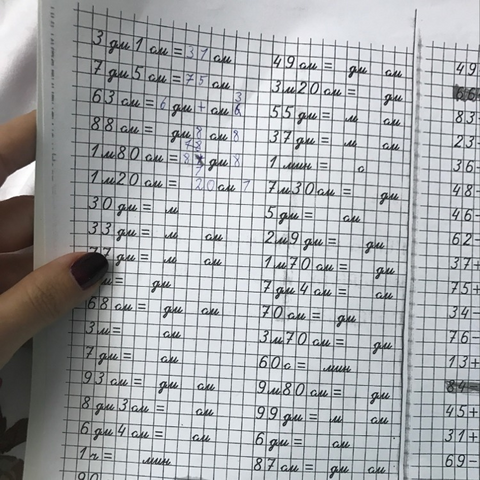 3 дм 1 см = 31 см
7 дм 5 см = 75 см
63 см = 6 дм + см 3
88 см = дм 8 см 8
1 м 80 см = дм 8
1 м 20 см = 20 см 1
30 дм = м
33 дм = м см
77 дм = м см
м = дм
68 см = дм см
3 м = см
7 дм = см
93 см = дм см
8 дм 3 см = см
6 дм 4 см = см
1 ч = мин
90
49 см = дм см
3 м 20 см = дм
55 дм = м см
37 дм = м см
1 мин = с
7 м 30 см = дм
5 дм = см
2 м 9 дм = дм
1 м 70 см = дм
7 дм 4 см = см
70 см = дм
3 м 70 см = дм
60 с = мин
9 м 80 см = дм
99 дм = м см
6 дм = см
87 см = дм см
49
66-
83-
23-
36
48-
46-
62-
37+
75+
34-
76-
13+
84-
45+
31+
69-